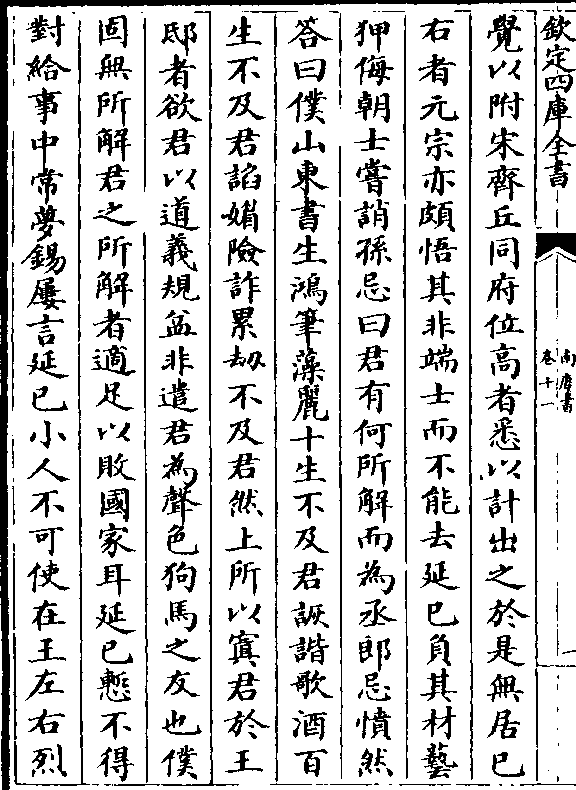 欽定四庫全書
南唐書
卷十一
一
覺以附宋齊丘同府位高者悉以計出之於是無居己
右者元宗亦頗悟其非端士而不能去延巳負其材藝
狎侮朝士嘗誚孫忌曰君有何所解而為丞郎忌憤然
答曰僕山東書生鴻筆藻麗十生不及君詼諧歌酒百
生不及君諂媚險詐累劫不及君然上所以寘君於王
邸者欲君以道義規益非遣君為聲色狗馬之友也僕
固無所解君之所解者適足以敗國家耳延巳慙不得
對給事中常夢錫屢言延巳小人不可使在王左右烈